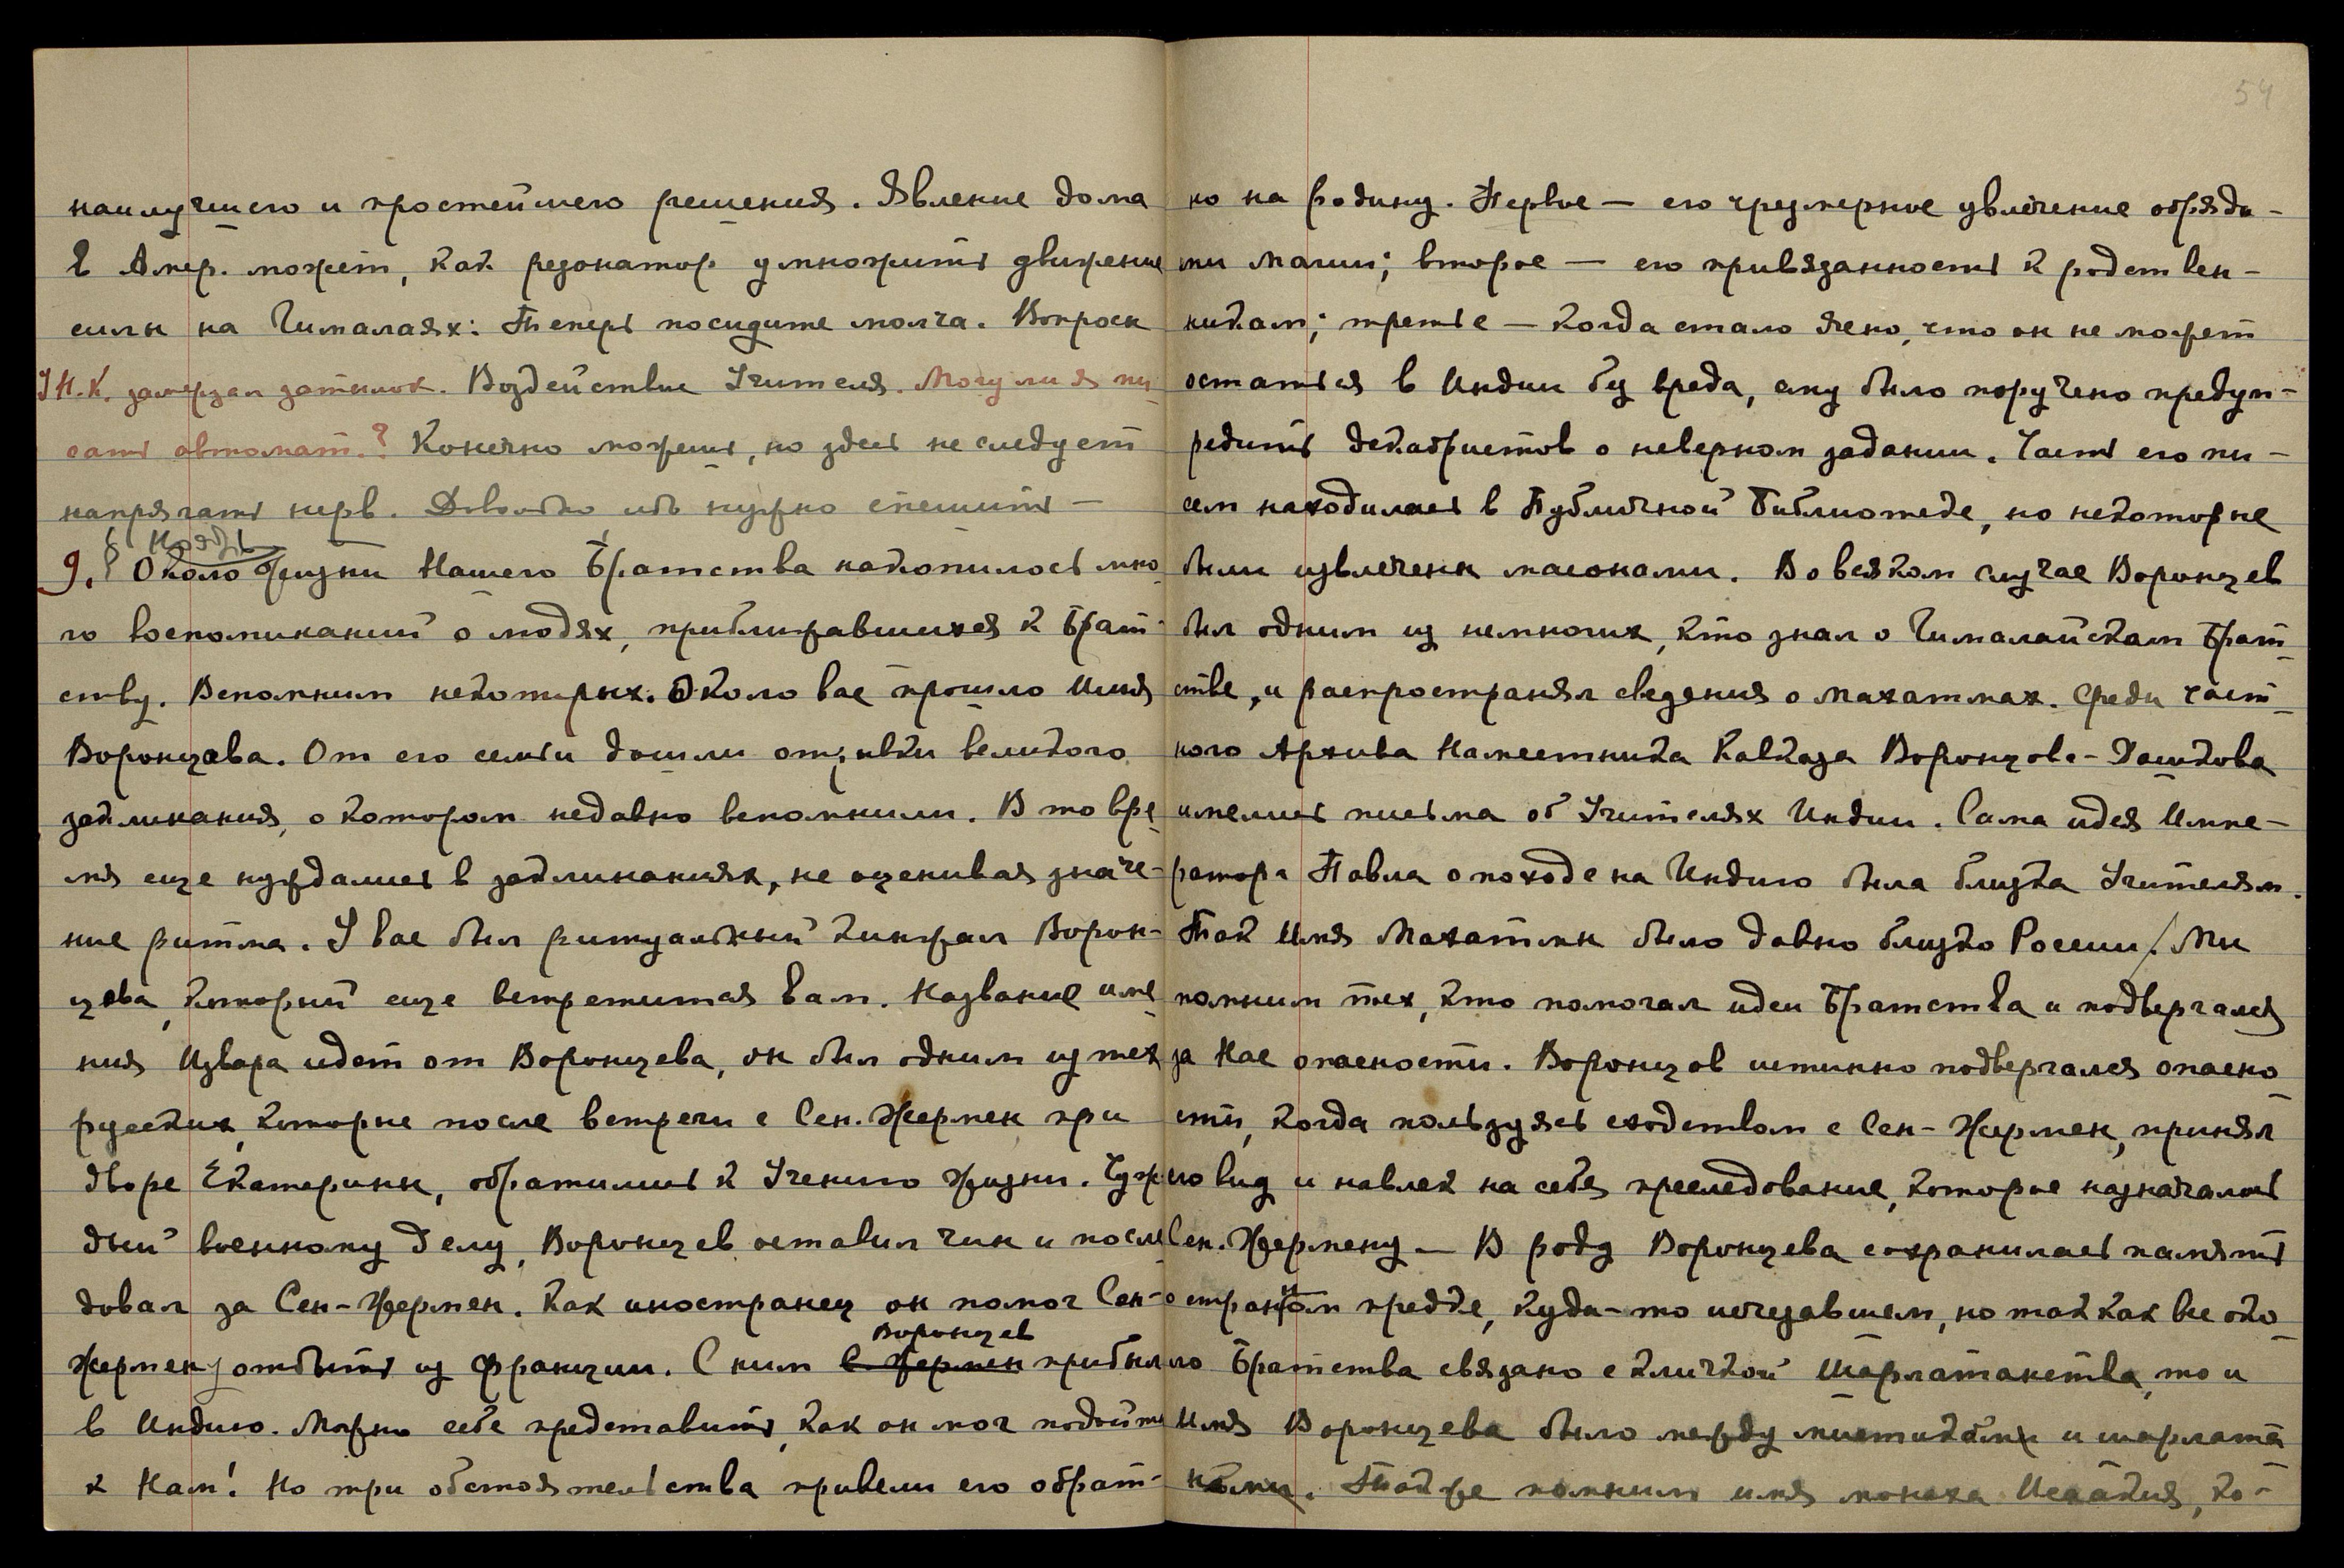 наилучшего и простейшего решения. Явление дома
в Амер. может, как резонатор умножить движение
силы на Гималаях. Теперь посидите молча. Вопросы
У Н.К. замерзал затылок. Воздействие Учителя. Могу ли я пи-
сать автомат.? Конечно можешь, но здесь не следует
напрягать нерв. Довольно ибо нужно спешить —
9. Около жизни Нашего Братства накопилось мно-
го воспоминаний о людях, приближавшихся к Брат-
ству. Вспомним некоторых. Около вас прошло Имя
Воронцова. От его семьи дошли отзывки великого
заклинания, о котором недавно вспомнили. В то вре-
мя еще нуждались в заклинаниях, не оценивая значе-
ние ритма. У вас был ритуальный кинжал Ворон-
цова, который еще встретится вам. Название име-
ния Извара идет от Воронцева, он был одним из тех
русских, которые после встречи с Сен. Жермен при
дворе Екатерины, обратились к Учению жизни. Чуж-
дый военному делу, Воронцев оставил чин и после-
довал за Сен-Жермен. Как иностранец он помог Сен-
Воронцев
Жермену отбыть из Франции. С ним С Жермен прибыл
в Индию. Можно себе представить, как он мог подойти
к Нам! Но три обстоятельства привели его обрат-
54
но на родину. Первое — его чрезмерное увлечение обряда-
ми магии; второе — его привязанность к родствен-
никам; третье — когда стало ясно, что он не может
остаться в Индии без вреда, ему было поручено предуп-
редить декабристов о неверном задании. Часть его пи-
сем находилась в Публичной Библиотеке, но некоторые
были извлечены масонами. Во всяком случае Воронцев
был одним из немногих, кто знал о Гималайском Брат-
стве, и распространял сведения о Махатмах. Среди част-
ного Архива Наместника Кавказа Воронцова-Дашкова
имелись письма об Учителях Индии. Сама идея Импе-
ратора Павла о походе на Индию была близка Учителям.
Так Имя Махатмы было давно близко России. Мы
помним тех, кто помогал идеи Братства и подвергался
за Нас опасности. Воронцов истинно подвергался опасно-
сти, когда пользуясь сходством с Сен-Жермен, принял
его вид и навлек на себя преследование, которое назначалось
Сен. Жермену — В роду Воронцева сохранилась память
о странном предке, куда-то исчезавшем, но так как все око-
ло Братства связано с кличкой шарлатанства, то и
Имя Воронцева было между мистиками и шарлата-
нами. Также помним имя монаха Исаакия, ко-